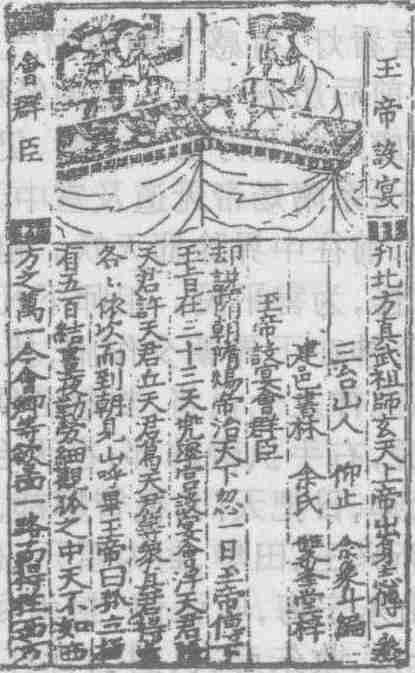 玉帝設宴
會群臣
刋北方真武祖師玄天上帝出身志傳一卷
三台山人 仰止 余象斗編
建邑書林 余氏 雙峯堂梓
玉帝設宴會群臣
却說隋朝隋煬帝治天下忽一日玉帝傳下
玉旨在三十三天宮設宴會天君
天君許天君丘天君葛天君等衆真君
各々依次而到朝見山呼畢玉帝曰孤立
有五百勞細觀孤之中天不如西
方之萬一今會卿等一路西方